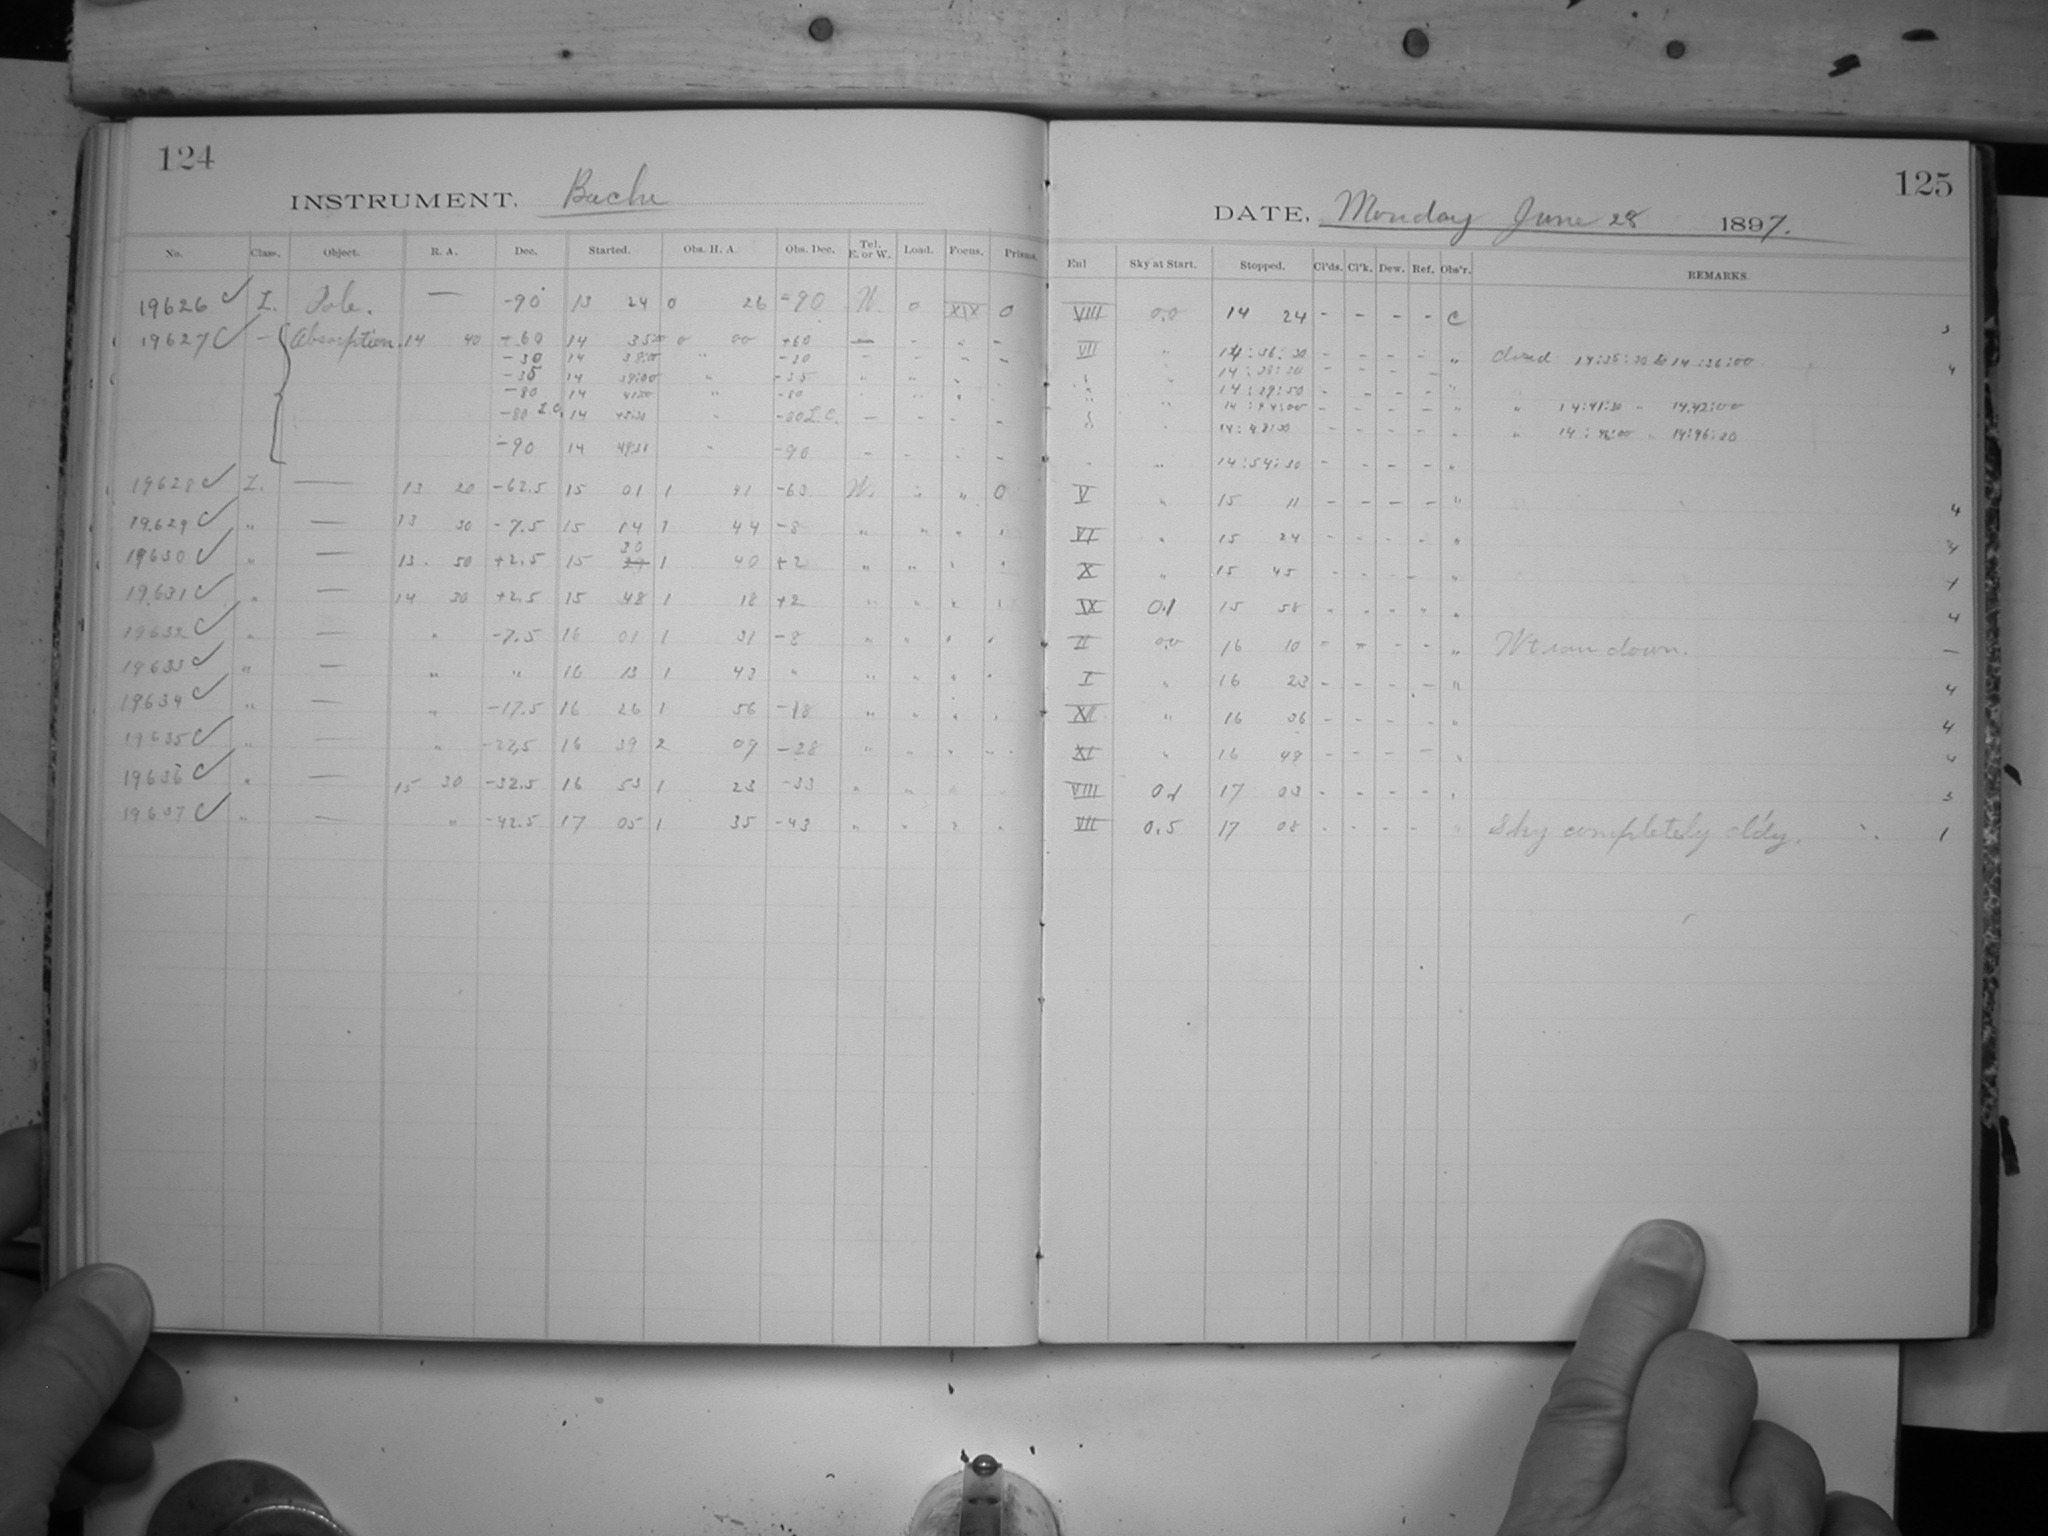 124
INSTRUMENT. Bache
No. Class. Object. R. A. Dec. Started. Obs. H. A. Obs. Dec. Tel. E. or W. Load. Focus. Prisms.
19626 I. Pole. — -90 13 24 0 26 -90 W. 0 XIX 0
19627 — Absorption 14 40 +60 14 35 0 00 +60 — - " -
-30 14 38:00 " -30 - - " -
-35 14 39:00 " -35 " " "
-80 14 41:00 " -80
-80 L.C. 14 45:30 " -80 L.C. — - - -
-90 14 49:30 " -90 - - -
19628 I. — 13 20 -62.5 15 01 1 41 -63 W. " " 0
19629 " — 13 30 -7.5 15 14 1 44 -8 " " " "
19630 " — 13 50 +2.5 15 30 1 40 +2 " " " "
19631 " — 14 30 +2.5 15 48 1 18 +2 " " " "
19632 " — " -7.5 16 01 1 31 -8 " " " "
19633 " — " " 16 13 1 43 " " " " "
19634 " — " -17.5 16 26 1 56 -18 " " " "
19635 " — " 16 39 2 09 -28 " " " "
19636 " — 15 30 -32.5 16 53 1 23 -33 " " "
19637 " — " -42.5 17 05 1 35 -43 " " " "
125
DATE, Monday June 28 1897.
Enl Sky at Start. Stopped. Cl'ds. Cl'k. Dew. Ref. Obs'r. REMARKS.
VIII 0.0 14 24 - - - - C 3
VII " 14:36:30 - - - - " closed 14:35:30 to 14:36:00 4
" 14:38:30 - - - - "
" 14:39:50 - - - - "
" 14:44:00 - - - - " " 14:41:30 " 14.42:00
" 14:48:30 - - - - " " 14:46:00 " 14:46:30
" " 14:54:30 - - - - "
V " 15 11 - - - - " 4
VI " 15 24 - - - - "
X " 15 45 - - - - "
IX 0.1 15 58 " " " " " 4
II 0.0 16 10 - - - - " Wt ran down. —
I " 16 23 - - - - " 4
XII " 16 36 - - - - " 4
XI " 16 49 - - - - " 4
VIII 0.1 17 03 - - - - " 3
VII 0.5 17 08 - - - - " Sky completely cl'dy. 1